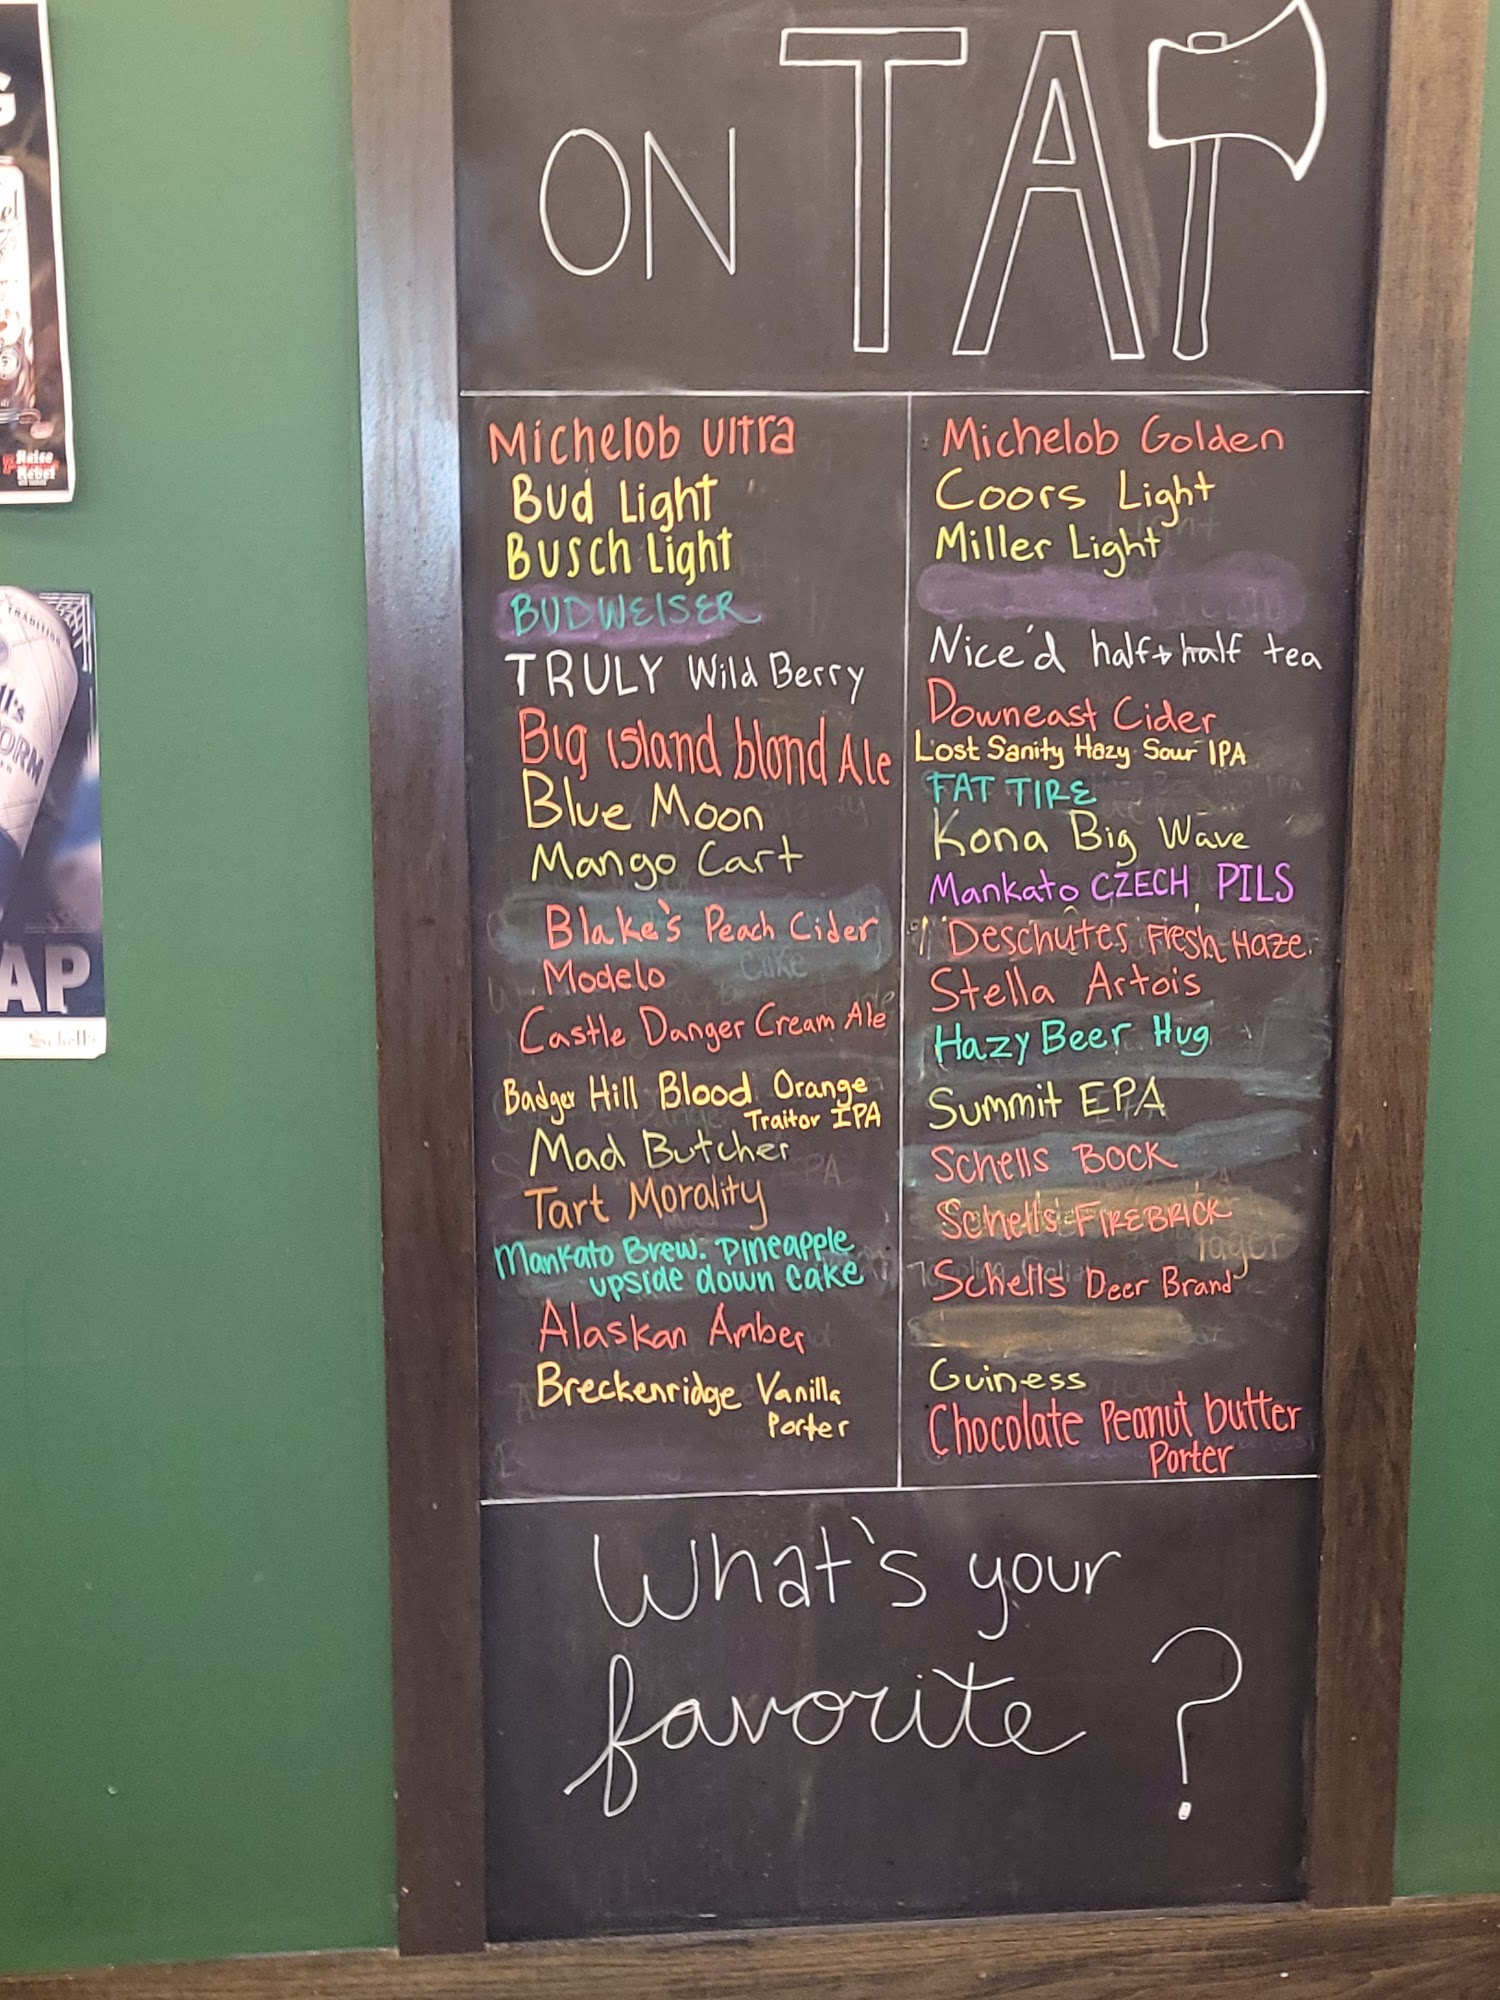 ON TAP
Michelob Ultra
Bud Light
Busch Light
BUDWEISER
TRULY Wild Berry
Big island blond Ale
Blue Moon
Mango Cart
Blake's Peach Cider
Modelo
Castle Danger Cream Ale
Badger Hill Blood Orange
Traitor IPA
Mad Butcher
Tart Morality
Mankato Brew. Pineapple
upside down cake
Alaskan Amber
Breckenridge Vanilla
Porter
Michelob Golden
Coors Light
Miller Light
Nice'd half + half tea
Downeast Cider
Lost Sanity Hazy Sour IPA
FAT TIRE
Kona Big Wave
Mankato CZECH PILS
Deschutes Fresh Haze
Stella Artois
Hazy Beer Hug
Summit EPA
Schells BOCK
Schells FIREBRICK
lager
Schells Deer Brand
Guiness
Chocolate Peanut butter
Porter
What's your
favorite ?
TRADITION
ORM
AP
Schell's
Raise
Rebel